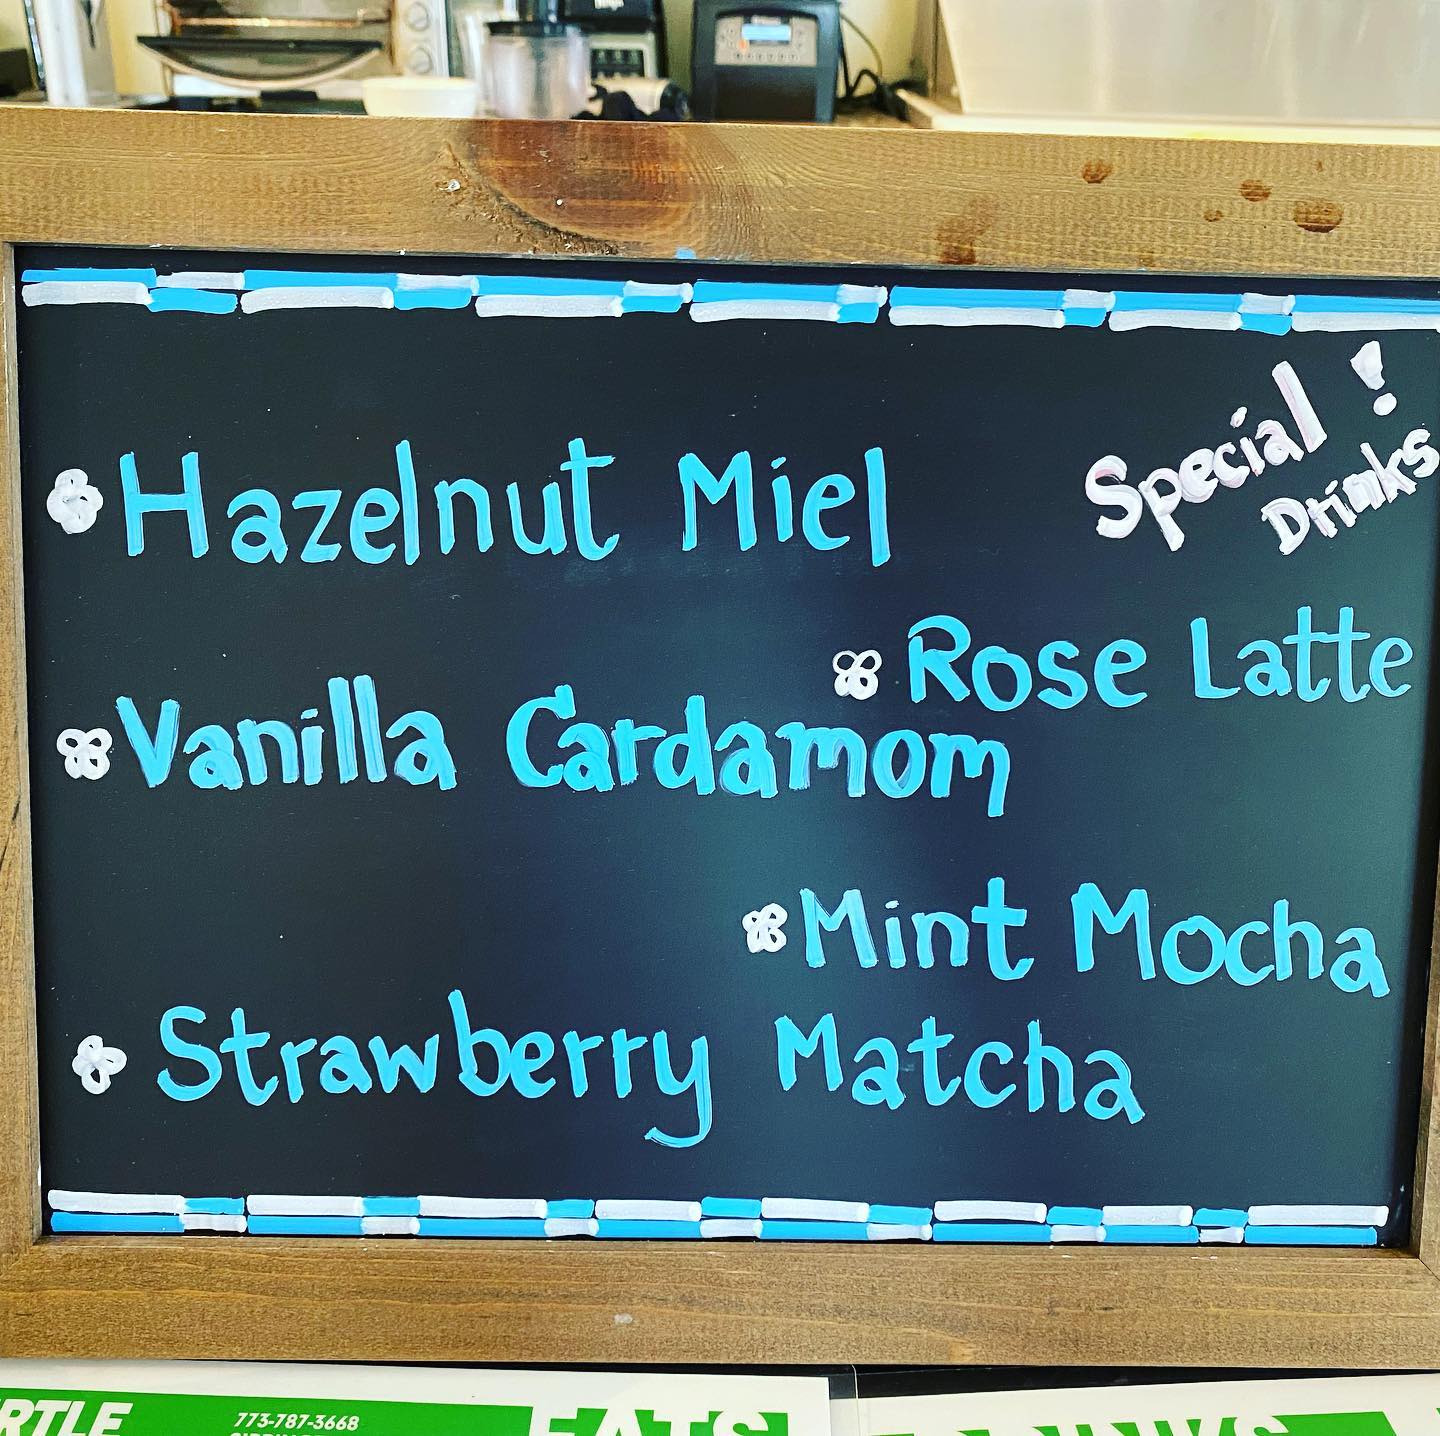 Special !
Drinks
Hazelnut Miel
Rose Latte
Vanilla Cardamom
Mint Mocha
Strawberry Matcha
773-787-3668
EATS